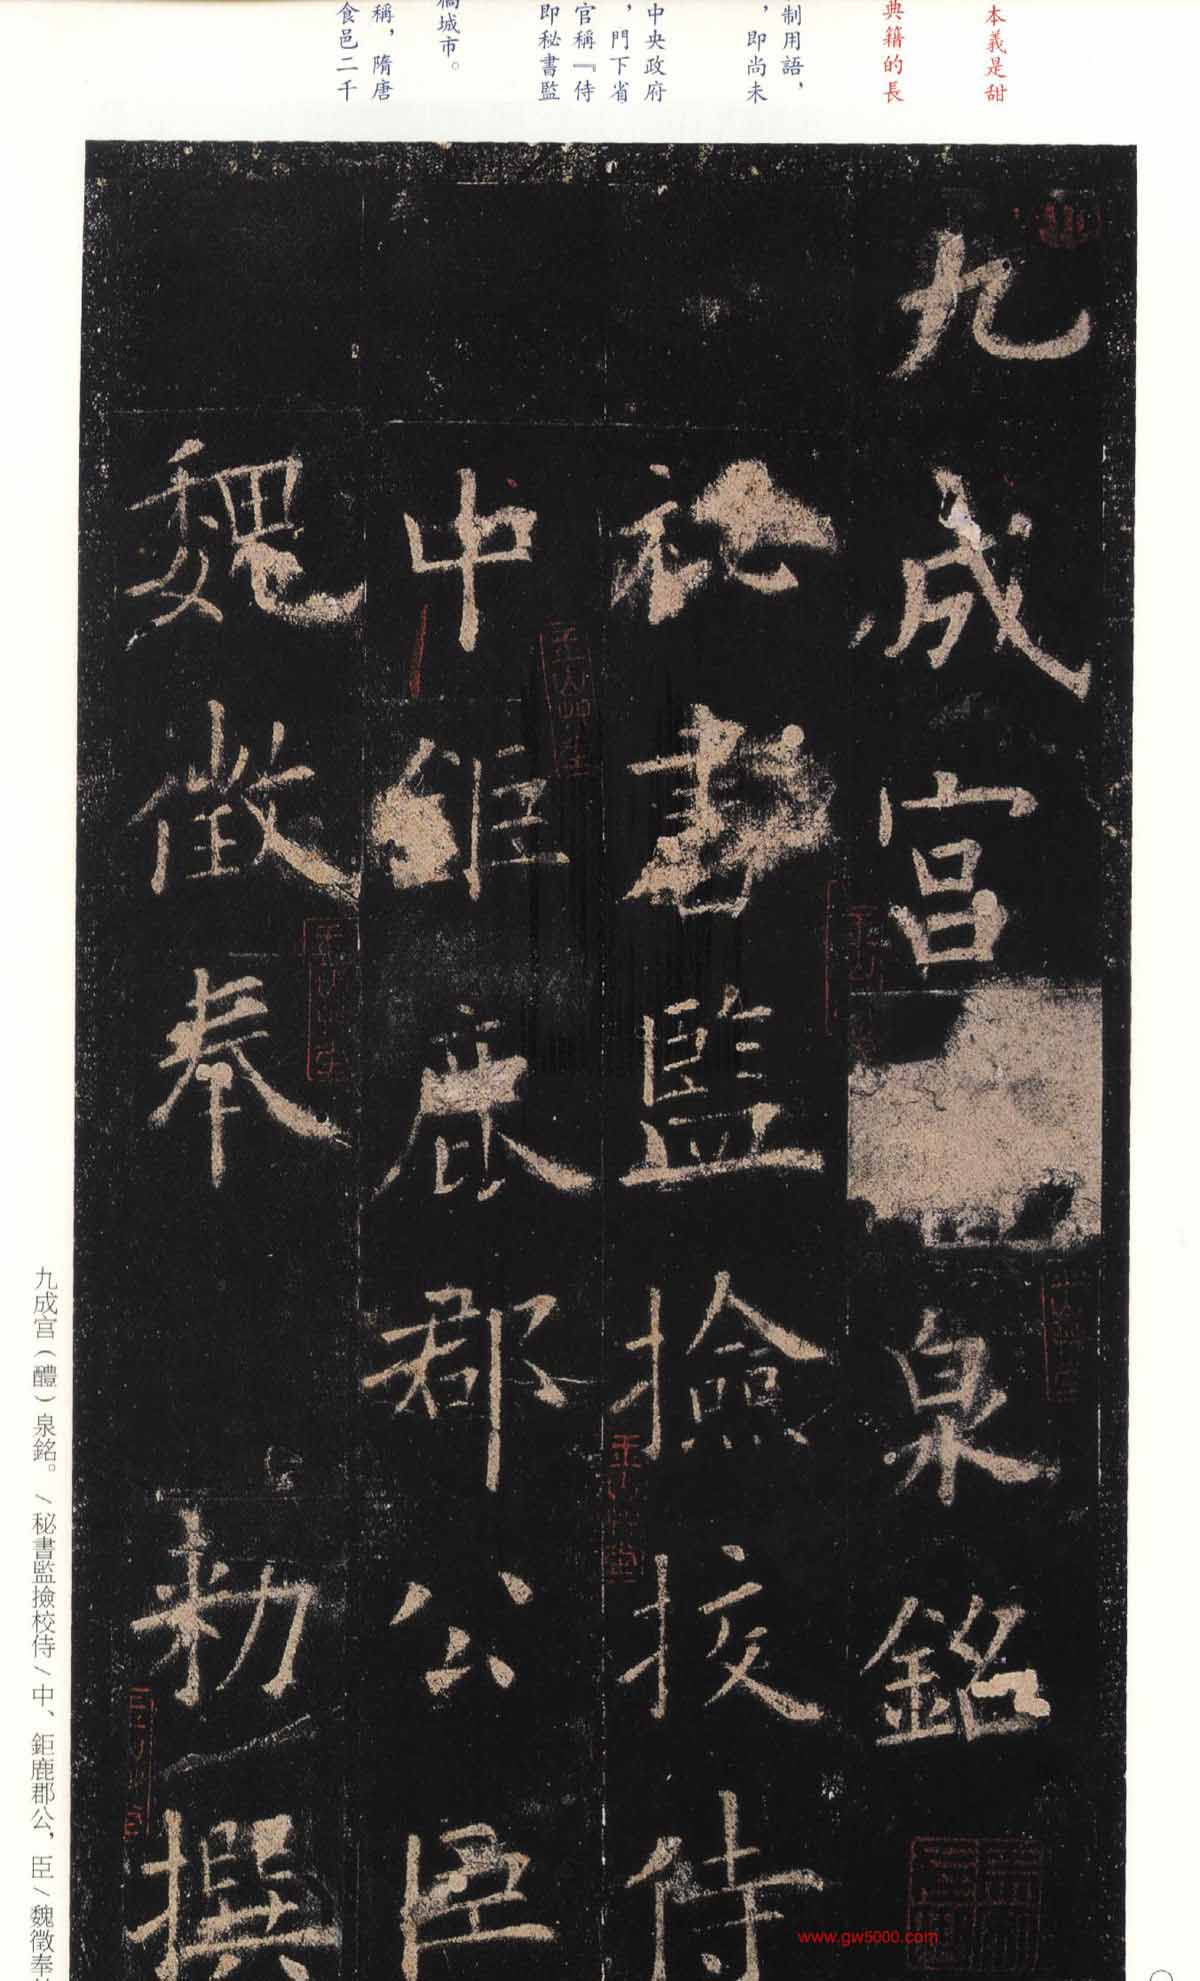 本義是甜
典籍的長
制用語，
，即尚未
中央政府
，門下省
官稱『侍
即秘書監
城市。
稱，隋唐
食邑二千
九成宫泉銘
秘書監撿挍侍
中鉅鹿郡公臣
魏徵奉 勑撰
九成宫（醴）泉銘。/秘書監撿校侍/中、鉅鹿郡公，臣/魏徵奉
www.gw5000.com